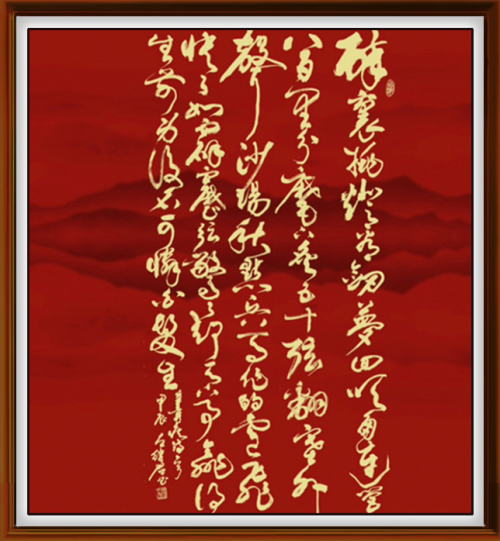 醉裏挑燈看劍夢回吹角連營
八百里分麾下炙五十弦翻塞外
聲沙場秋點兵馬作的盧飛
快弓如霹靂弦驚了卻君王天下事贏得
生前身後名可憐白髮生
甲辰